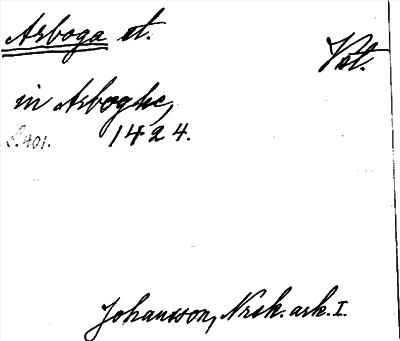 Arboga st.
Vstl.
in Arboghe,
1424.
S. 401.
Johansson, Nrsk. ark. I.